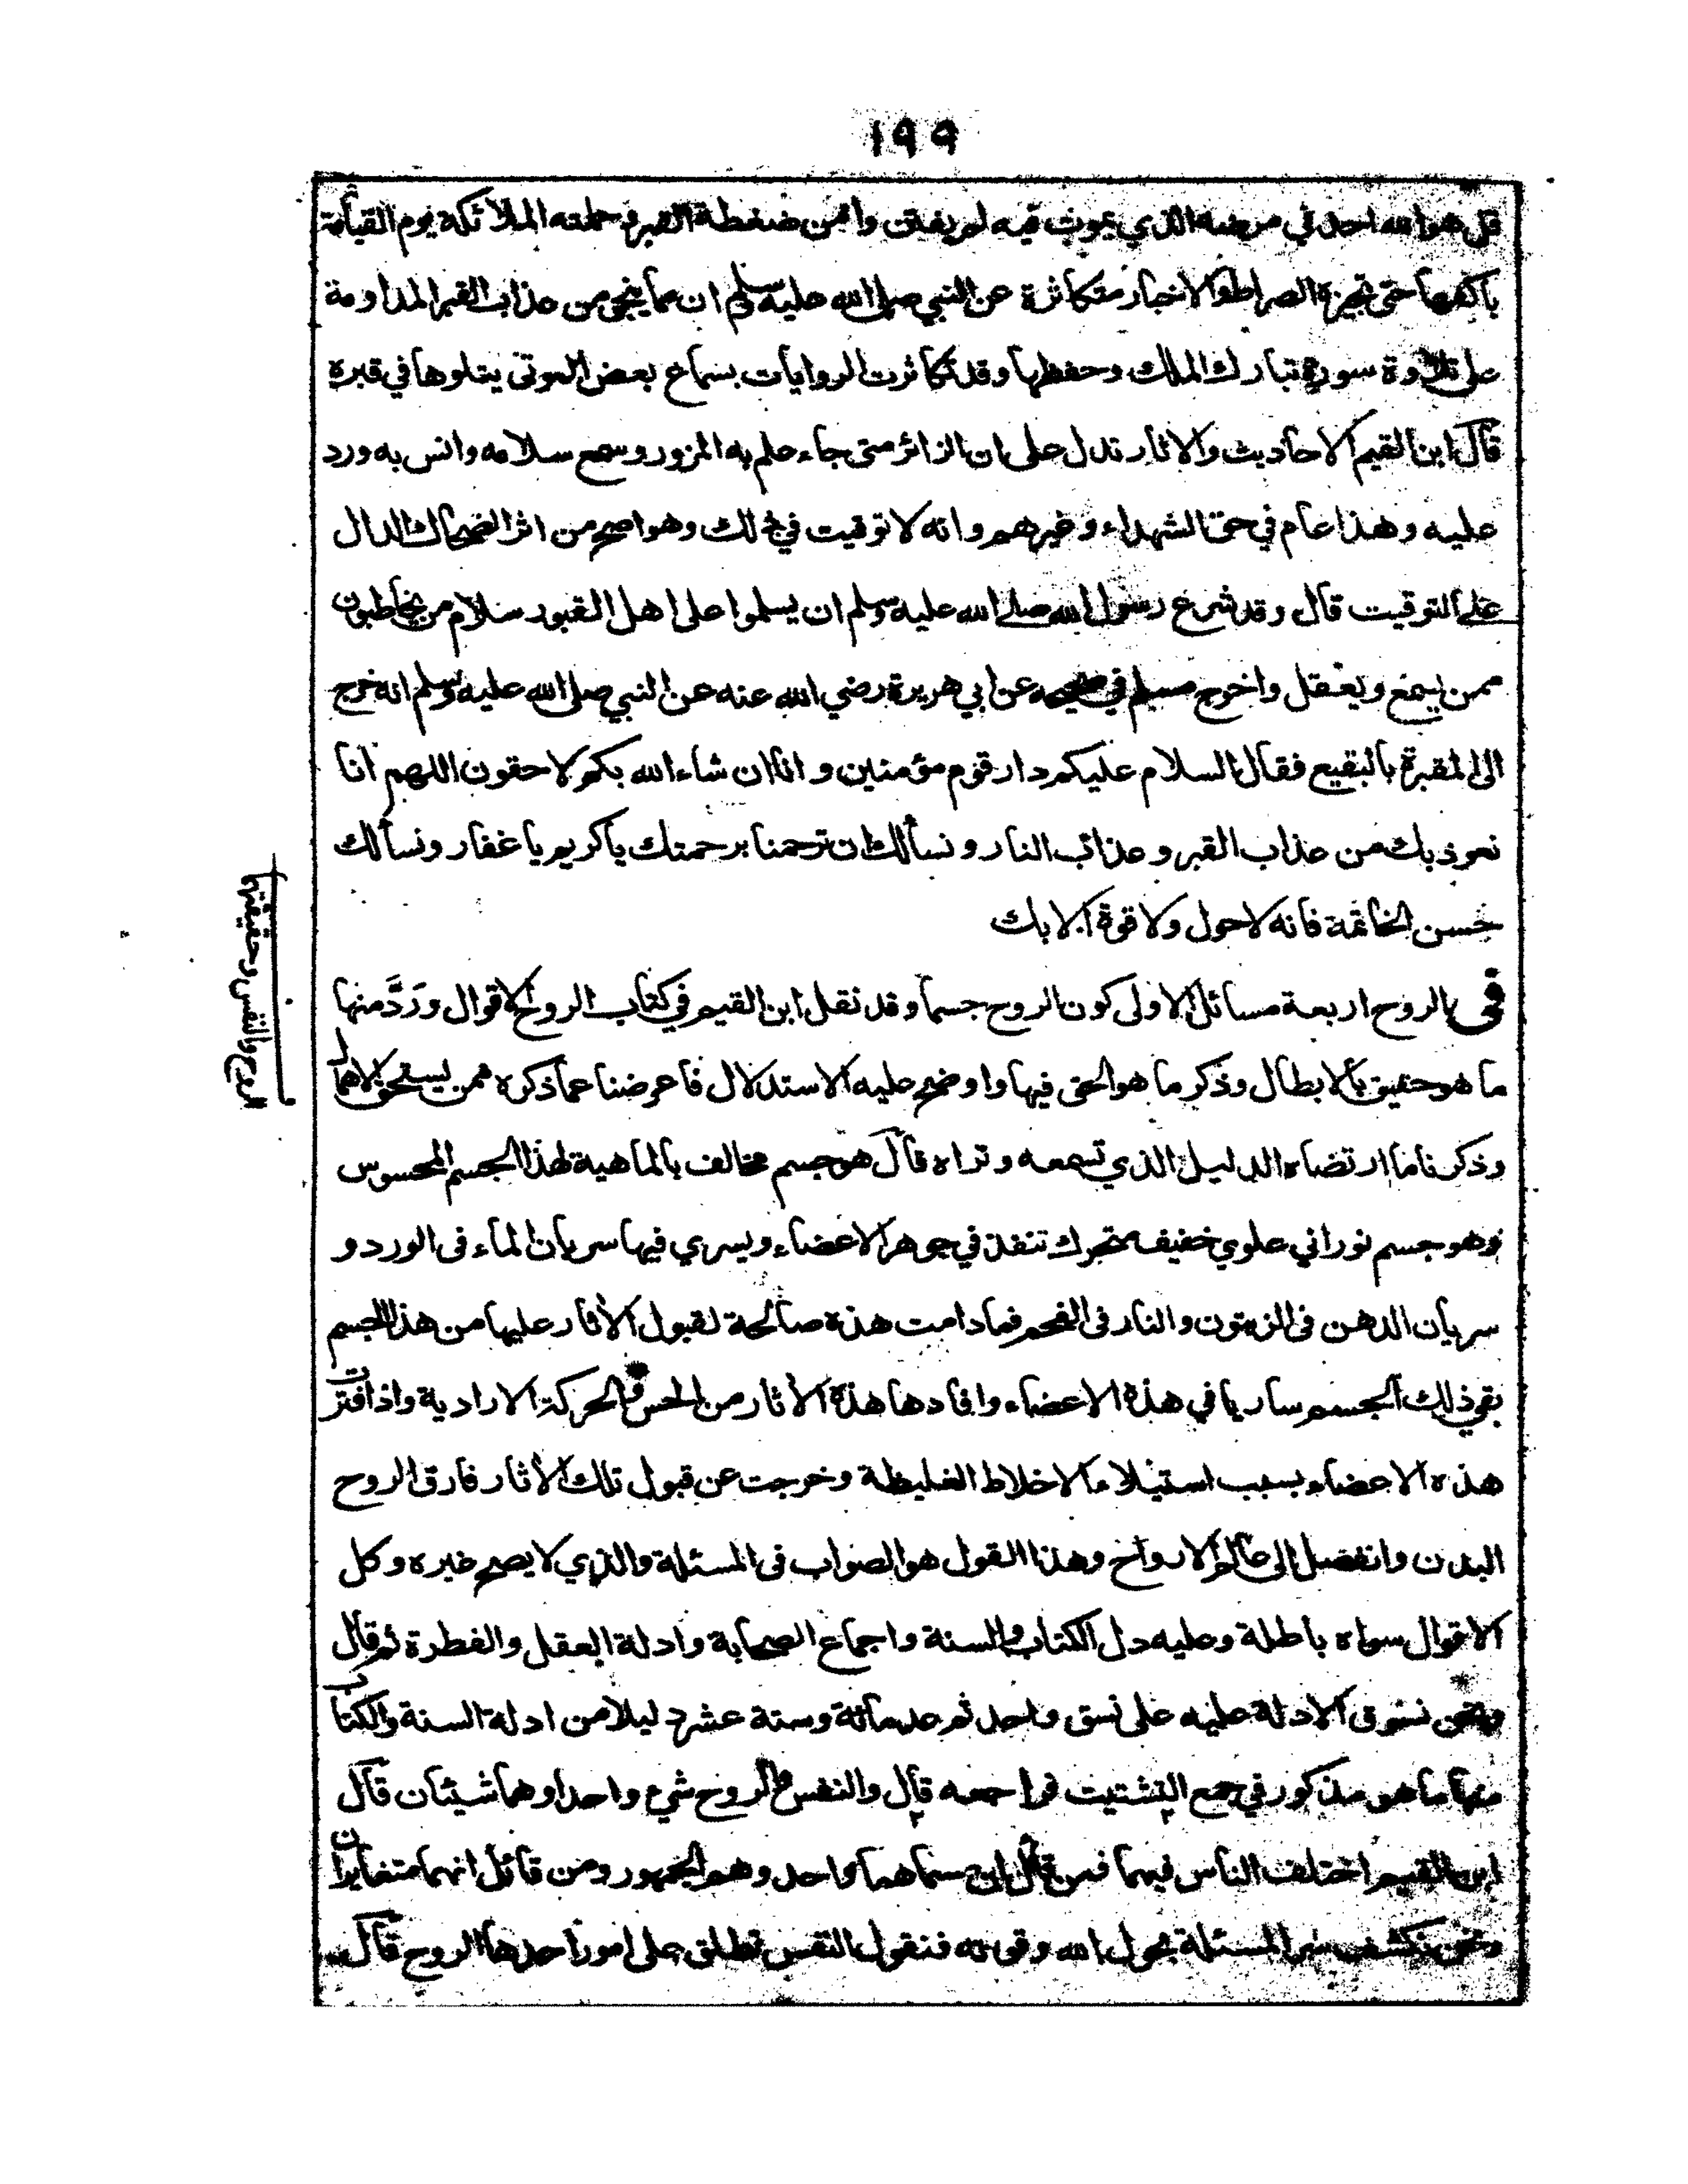 ١٩٩
قل هو الله احد في مرضه الذي يموت فيه لم يفتن وامن من ضغطة القبر وحملته الملائكة يوم القيأمة
باكفها حتى تجيزه الصراط والاخبار متكاثرة عن النبي صلى الله عليه وسلم ان مما ينجي من عذاب القبر المداومة
على تلاوة سورة تبارك الملك وحفظها وقد تكاثرت الروايات بسماع بعض الموتى يتلوها في قبره
قال ابن القيم الاحاديث والاثار تدل على ان الزائر متى جاء علم به المزور وسمع سلامه وانس به ورد
عليه وهذا عام في حق الشهداء وغيرهم وانه لا توقيت في ذلك وهو اصح من اثر الضحاك الدال
على التوقيت قال وقد شرع رسول الله صلى الله عليه وسلم ان يسلموا على اهل القبور سلام من يخاطبون
ممن يسمع ويعقل واخرج مسلم في صحيحه عن ابي هريرة رضي الله عنه عن النبي صلى الله عليه وسلم انه خرج
الى المقبرة بالبقيع فقال السلام عليكم دار قوم مؤمنين وانا ان شاء الله بكم لاحقون اللهم انا
نعوذ بك من عذاب القبر وعذاب النار ونسألك ان ترحمنا برحمتك يا كريم يا غفار ونسألك
حسن الخاتمة فانه لا حول ولا قوة الا بك
الروح والنفس وحقيقتها
في الروح اربعة مسائل الاولى كون الروح جسما وقد نقل ابن القيم في كتاب الروح الاقوال ورَدَّ منها
ما هو حقيق بالابطال وذكر ما هو الحق فيها واوضح عليه الاستدلال فاعرضنا عما ذكره ممن يستحق الاهمال
وذكرنا ما ارتضاه الدليل الذي تسمعه وتراه قال هو جسم مخالف بالماهية لهذا الجسم المحسوس
وهو جسم نوراني علوي خفيف متحرك تنفذ في جوهر الاعضاء ويسري فيها سريان الماء فى الورد و
سريان الدهن فى الزيتون والنار فى الفحم فما دامت هذه صالحة لقبول الأثار عليها من هذا الجسم
بقي ذلك الجسم ساريا في هذه الاعضاء وافادها هذه الأثار من الحس والحركة الارادية واذا فترت
هذه الاعضاء بسبب استيلاء الاخلاط الغليظة وخرجت عن قبول تلك الأثار فارق الروح
البدن وانفصل الى عالم الارواح وهذا القول هو الصواب فى المسئلة والذي لا يصح غيره وكل
الاقوال سواه باطلة وعليه دل الكتاب والسنة واجماع الصحابة وادلة العقل والفطرة ثم قال
ونحن نسوق الادلة عليه على نسق واحد ثم عد مائة وستة عشر دليلا من ادلة السنة والكتاب
منها ما هو مذكور في جمع التشتيت فراجعه قال والنفس والروح شيء واحد او هما شيئان قال
ابن القيم اختلف الناس فيهما فمن قائل ان مسماهما واحد وهم الجمهور ومن قائل انهما متغايران
ونحن نكشف سر المسئلة بحول الله وقوته فنقول النفس تطلق على امور احدها الروح قال